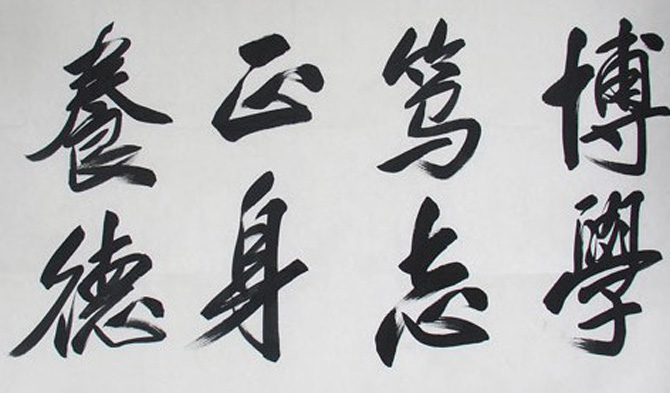 博學
篤志
正身
養德